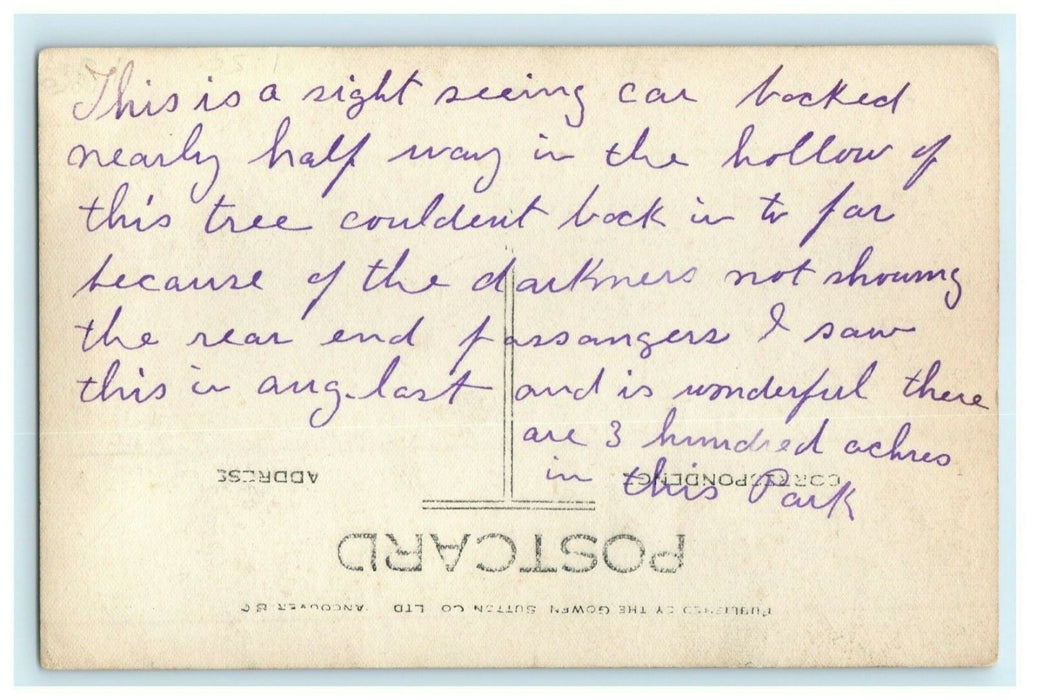 This is a sight seeing car backed
nearly half way in the hollow of
this tree couldent back in to far
because of the darkness not showing
the rear end passangers I saw
this in aug. last and is wonderful there
are 3 hundred achres
in this Park
ADDRESS
CORRESPONDENCE
POSTCARD
PUBLISHED BY THE GOWEN SUTTON CO LTD VANCOUVER B C